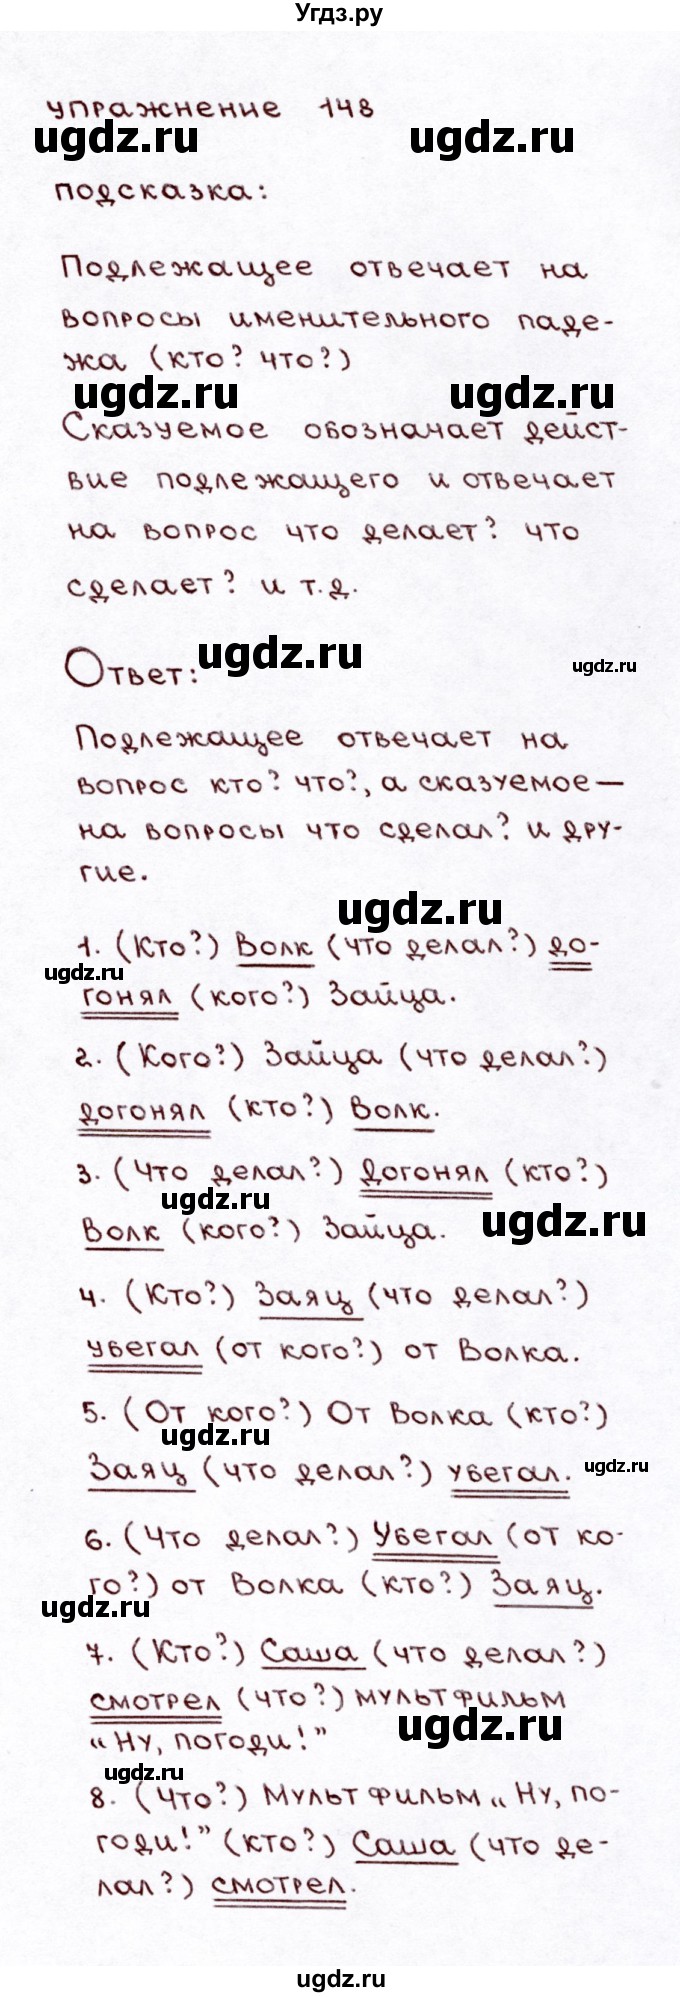 Угдз.ру
упражнение 148
ugdz.ru ugdz.ru
подсказка:
Подлежащее отвечает на
вопросы именительного паде-
жа (кто? что?)
ugdz.ru ugdz.ru
Сказуемое обозначает дейст-
вие подлежащего и отвечает
на вопрос что делает? что
сделает? и т.д.
ugdz.ru ugdz.ru
Ответ:
Подлежащее отвечает на
вопрос кто? что?, а сказуемое —
на вопросы что сделал? и дру-
гие.
ugdz.ru
1. (Кто?) Волк (что делал?) до-
ugdz.ru
гонял (кого?) Зайца.
2. (Кого?) Зайца (что делал?)
догонял (кто?) Волк.
3. (Что делал?) Догонял (кто?)
ugdz.ru ugdz.ru
Волк (кого?) Зайца.
4. (Кто?) Заяц (что делал?)
убегал (от кого?) от Волка.
5. (От кого?) От Волка (кто?)
ugdz.ru
Заяц (что делал?) убегал.
ugdz.ru
6. (Что делал?) Убегал (от ко-
го?) от Волка (кто?) Заяц.
ugdz.ru
7. (Кто?) Саша (что делал?)
смотрел (что?) мультфильм
ugdz.ru
„Ну, погоди!”
ugdz.ru
8. (Что?) Мультфильм „Ну, по-
годи!” (кто?) Саша (что де-
лал?) смотрел.
ugdz.ru